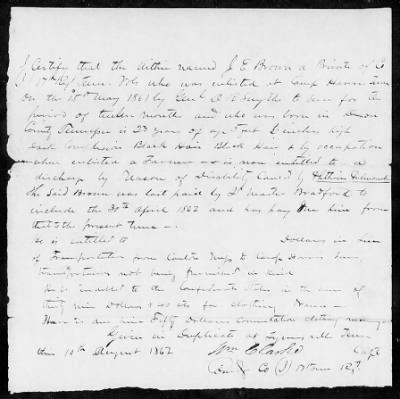 I Certify that the within named J E Brown a Private of Co
(I) 17th Regt Tenn. Vols who was enlisted at Camp Harris Tenn
On the 18th May 1861 by Genl D. R Smythe to serve for the
period of twelve months and who was born in
County Tennessee is 23 years of age 5 feet inches high
Dark Complexion Black Hair Black Hair & by occupation
when enlisted a Farmer is now entitled to a
discharge by Reason of Disability Caused by
The Said Brown was last paid by Qr Master Bradford to
include the 30th April 1862 and has pay due him from
that to the present time
He is entitled to Dollars in lieu
of Transportation from to Camp Harris Tenn,
transportation not being furnished in kind
He is indebted to the Confederate States in the sum of
thirty nine Dollars & cts for clothing
There is due him Fifty Dollars commutation clothing money
Given in Duplicate at Tenn
this 10th August 1862
Wm Clarke Capt
Comdg Co (I) 17 Tenn Regt